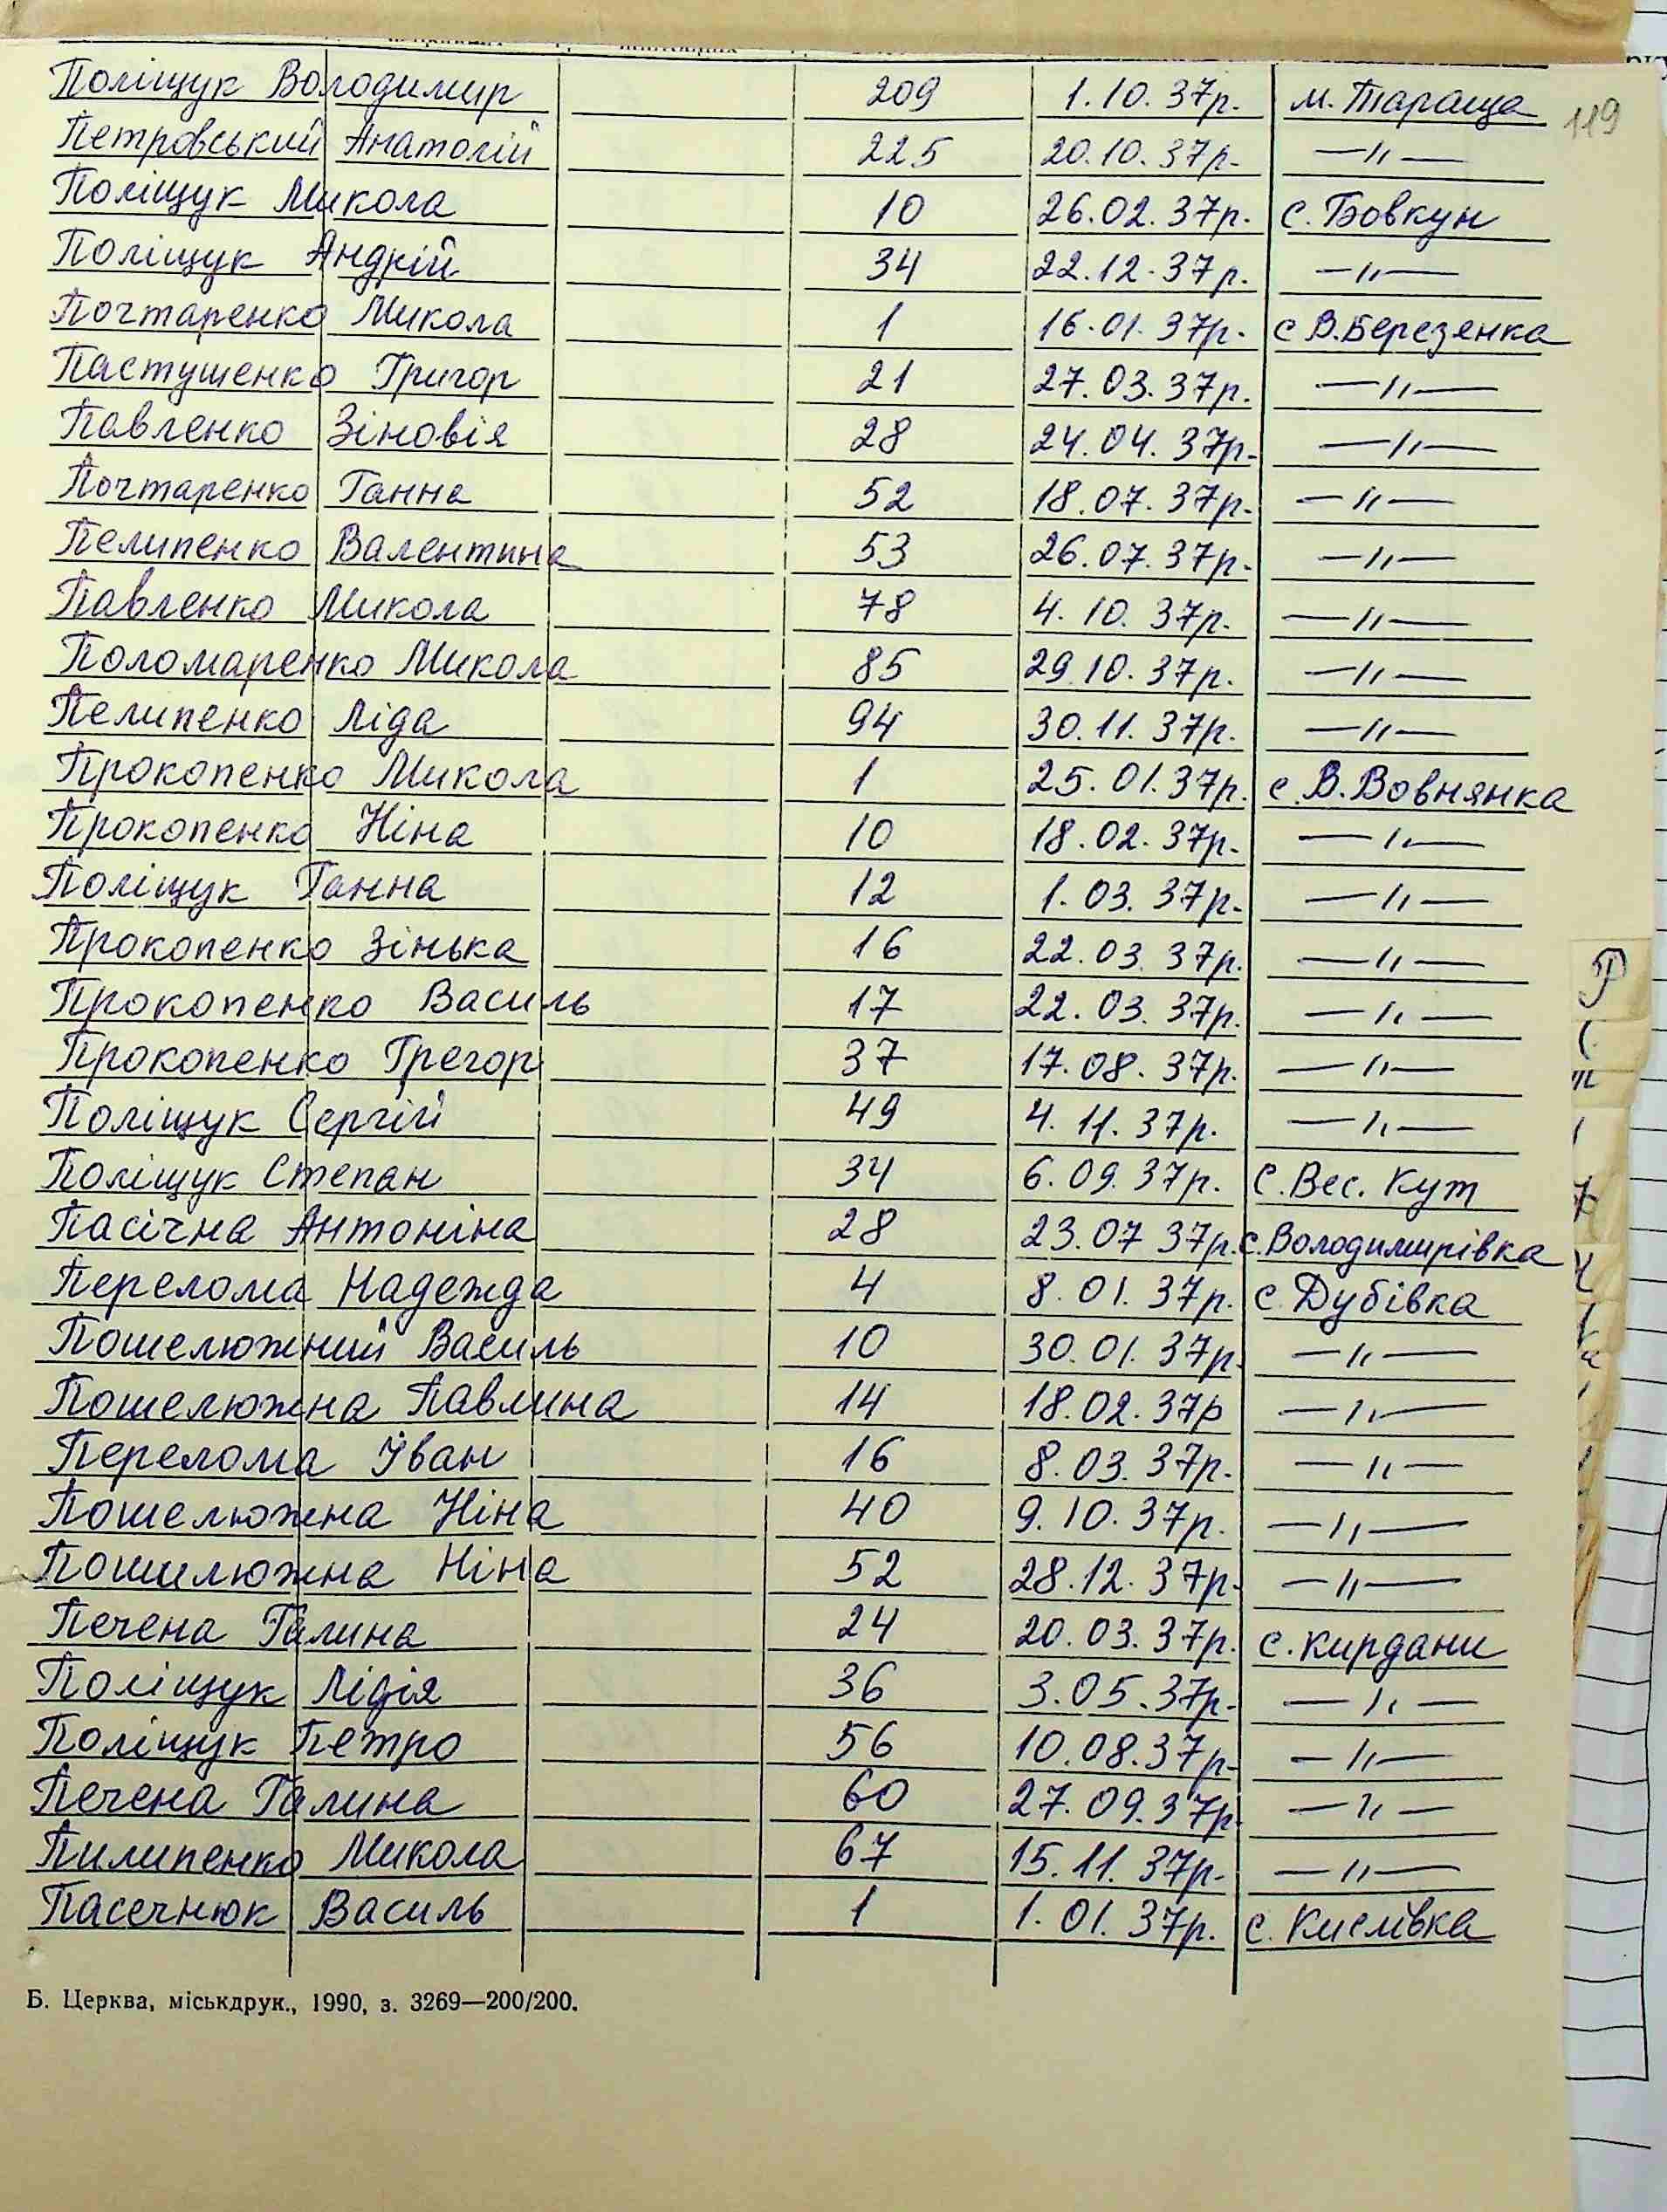 119
Поліщук Володимир 209 1.10.37р. м. Тараща
Петровський Анатолій 225 20.10.37р. —"—
Поліщук Микола 10 26.02.37р. с. Бовкун
Поліщук Андрій 34 22.12.37р. —"—
Почтаренко Микола 1 16.01.37р. с В.Березянка
Пастушенко Григор 21 27.03.37р. —"—
Павленко Зіновія 28 24.04.37р. —"—
Почтаренко Ганна 52 18.07.37р. —"—
Пелипенко Валентина 53 26.07.37р. —"—
Павленко Микола 78 4.10.37р. —"—
Поломаренко Микола 85 29.10.37р. —"—
Пелипенко Ліда 94 30.11.37р. —"—
Прокопенко Микола 1 25.01.37р. с. В.Вовнянка
Прокопенко Ніна 10 18.02.37р. —"—
Поліщук Ганна 12 1.03.37р. —"—
Прокопенко Зінька 16 22.03.37р. —"—
Прокопенко Василь 17 22.03.37р. —"—
Прокопенко Грегор 37 17.08.37р. —"—
Поліщук Сергій 49 4.11.37р. —"—
Поліщук Степан 34 6.09.37р. С.Вес. Кут
Пасічна Антоніна 28 23.07 37р. с.Володимирівка
Перелома Надежда 4 8.01.37р. с. Дубівка
Пошелюжний Василь 10 30.01.37р. —"—
Пошелюжна Павлина 14 18.02.37р —"—
Перелома Іван 16 8.03.37р. —"—
Пошелюжна Ніна 40 9.10.37р. —"—
Пошилюжна Ніна 52 28.12.37р. —"—
Печена Галина 24 20.03.37р. с. Кирдани
Поліщук Лідія 36 3.05.37р. —"—
Поліщук Петро 56 10.08.37р. —"—
Печена Галина 60 27.09.37р. —"—
Пилипенко Микола 67 15.11.37р. —"—
Пасечнюк Василь 1 1.01.37р. с. Кислівка
Б. Церква, міськдрук., 1990, з. 3269—200/200.